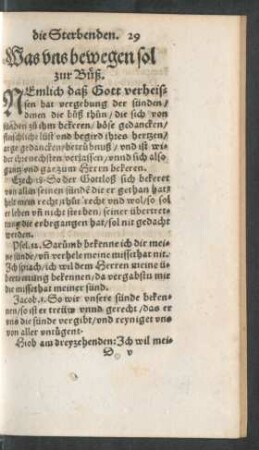 die Sterbenden. 29
Was vns bewegen sol
zur Büß.
NEmlich daß Gott verheis-
sen hat vergebung der sünden/
denen die büß thůn/die sich von
sünden zů ihm bekeren/böse gedancken/
lust vnd begird ihres hertzen/
arge gedancken/ betrübnuß/ vnd ist wi-
der verlassen/vnnd sich also
gantz vnd gar zum Herrn bekeren.
Ezech.18. So der Gottloß sich bekeret
von allen seinen sündē die er gethan hat/
helt mein recht/thůt recht vnd wol/so sol
er leben vñ nicht sterben/ seiner übertret-
tung die er begangen hat/sol nit gedacht
werden.
Psal.32. Darumb bekenne ich dir mei-
ne sünde/vñ verhele meine missethat nit.
Ich sprach/ich wil dem Herren meine ü-
bertrettung bekennen/da vergabstu mir
die missethat meiner sünd.
Jacob.1. So wir vnsere sünde beken-
nen/so ist er treüw vnnd gerecht/das er
vns die sünde vergibt/vnd reyniget vns
von aller vntugent.
Hiob am dreyzehenden: Ich wil mei-
D v